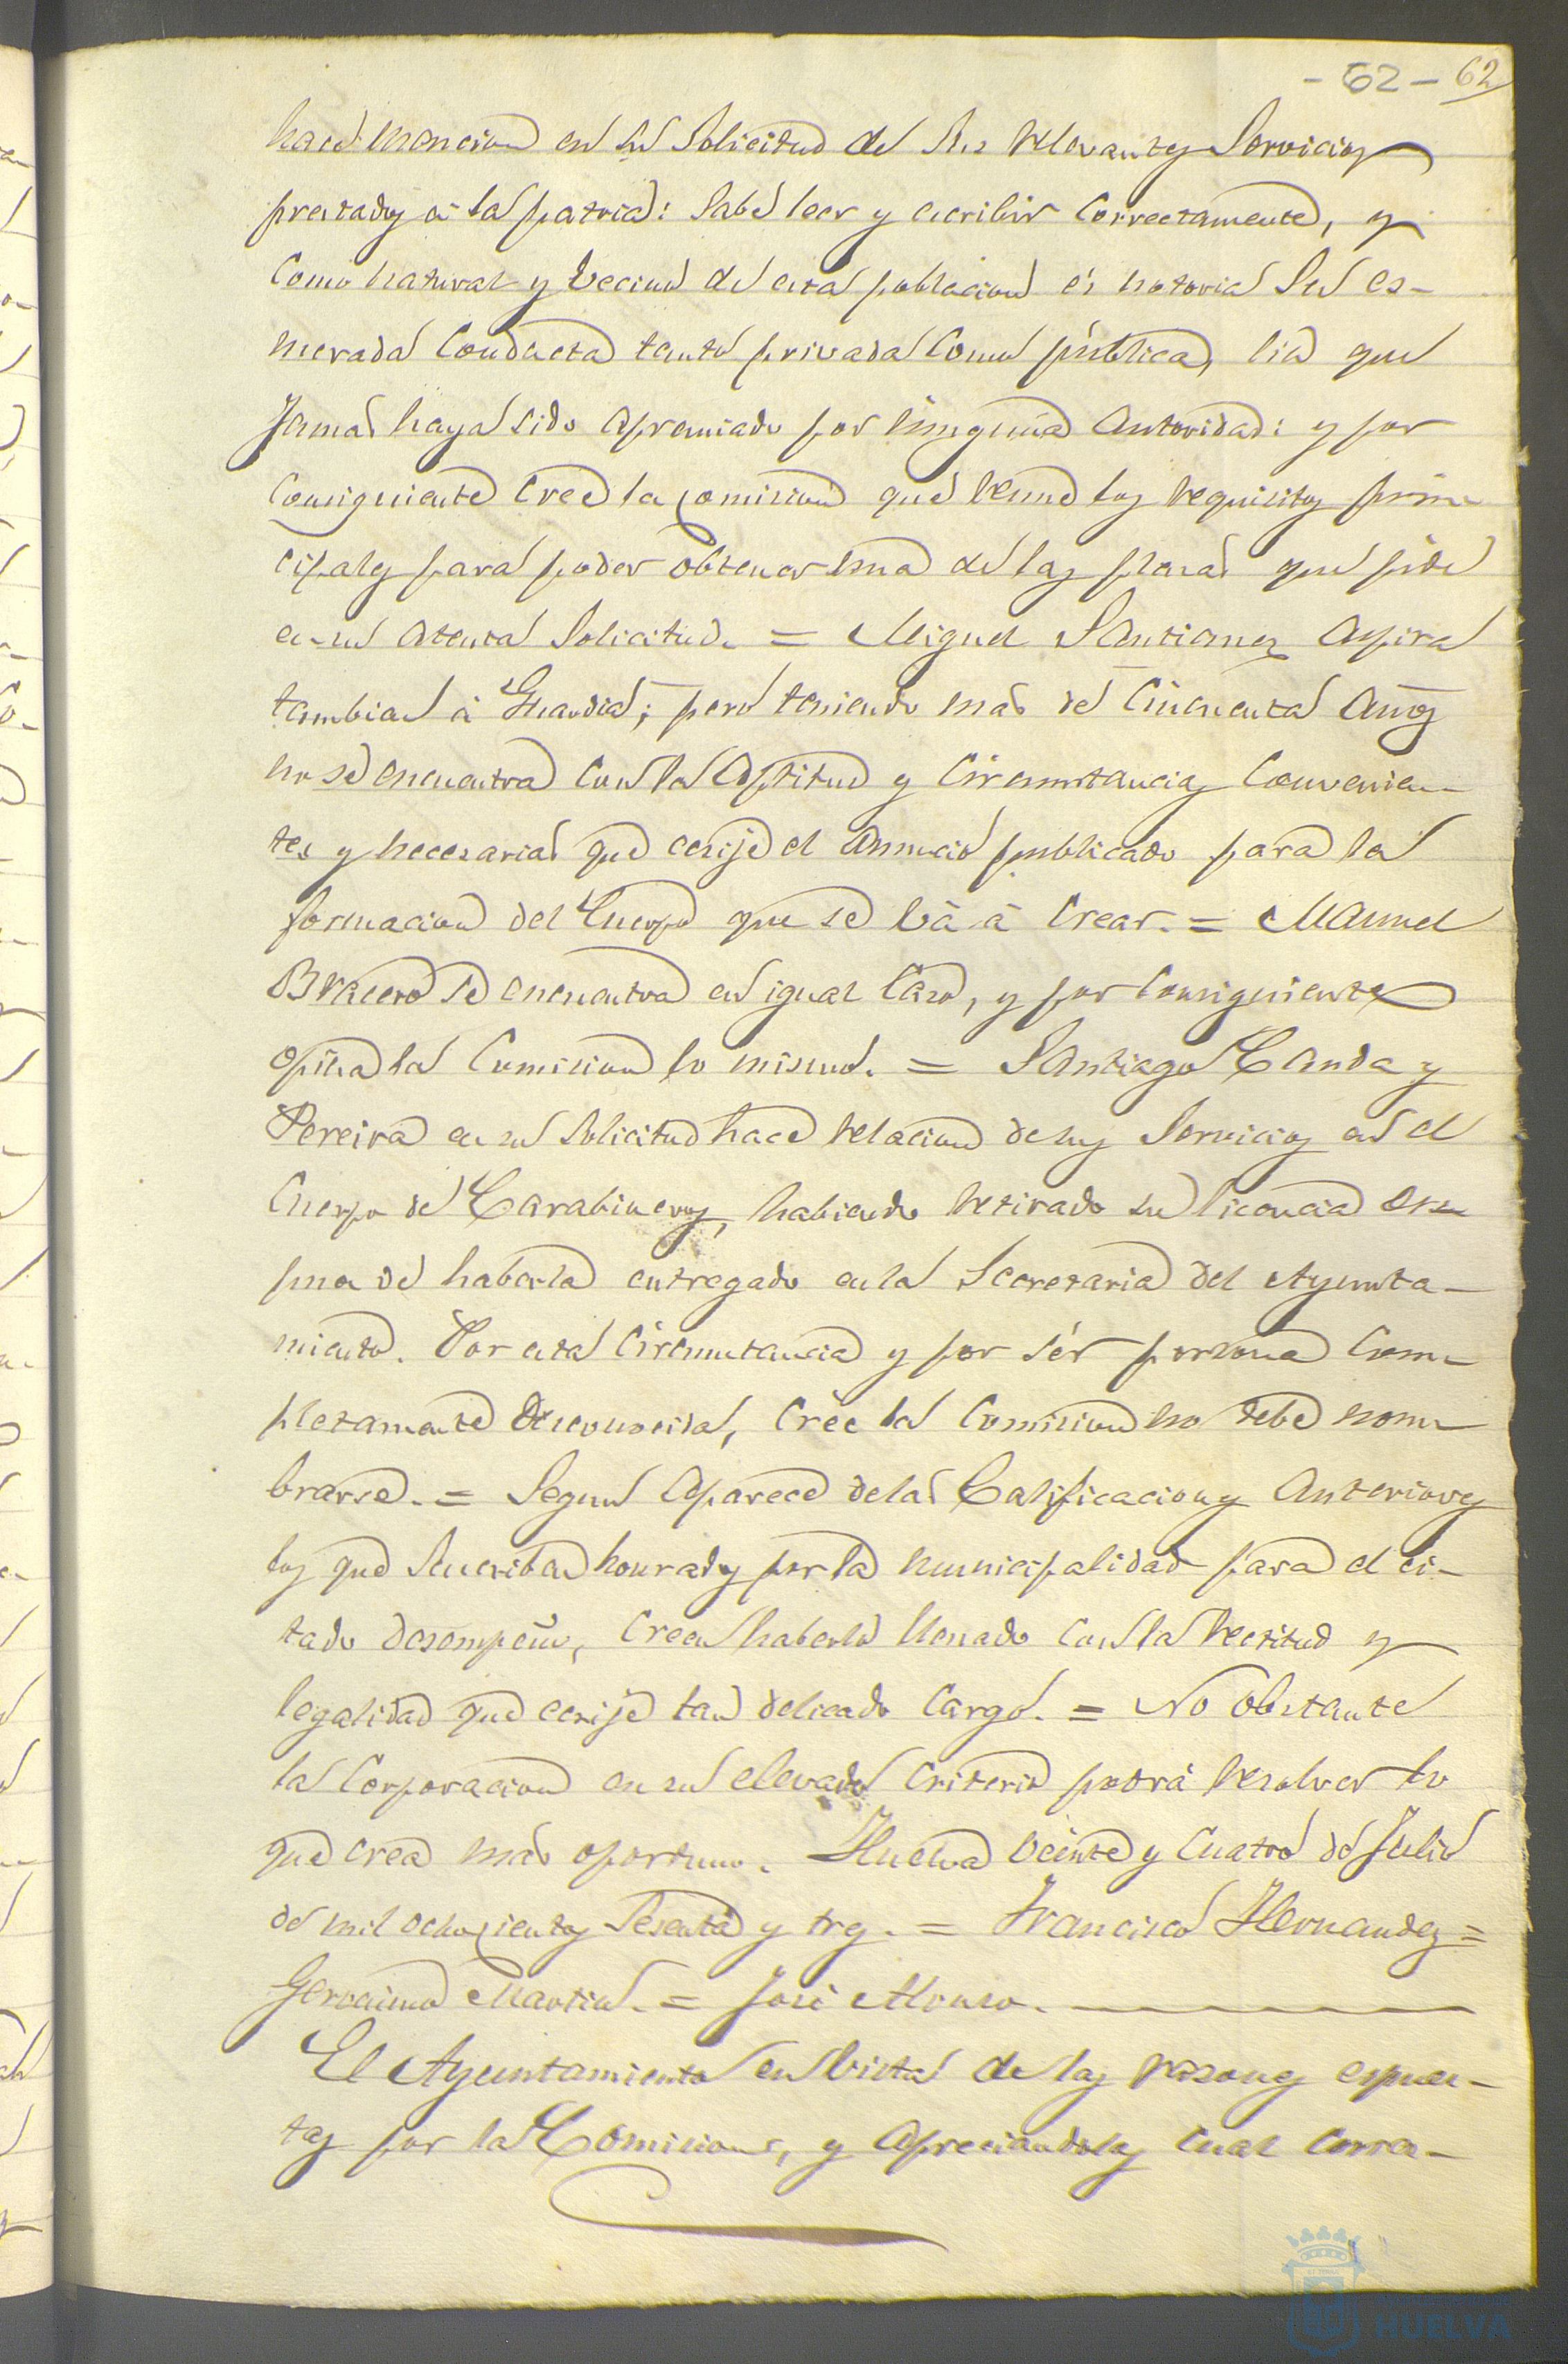 - 62 - 62
hace mencion en su Solicitud de sus relevantes Servicios
prestados á la patria: Sabe leer y escribir Correctamente, y
Como natural y vecino de esta poblacion és notoria Su es-
merada Conducta tanto privada Como pública, sin que
Jamas haya sido apremiado por ninguna autoridad: y por
Consiguiente cree la Comision que reune los requisitos prin-
cipales para poder obtener una de las plazas que pide
en su atenta Solicitud. = Miguel Santianez aspira
tambien á Guardia; pero teniendo mas de Cincuenta años
no se encuentra con la aptitud y Circunstancias Convenien-
tes y necesarias que ecsije el anuncio publicado para la
formacion del Cuerpo que se vá á Crear. = Manuel
Bracero se encuentra en igual Caso, y por Consiguiente
opina la Comision lo mismo. = Santiago Canda y
Pereira en su Solicitud hace relacion de sus Servicios en el
Cuerpo de Carabineros, habiendo retirado su licencia des-
pues de haberla entregado en la Secretaria del Ayunta-
miento. Por esta Circunstancia y por sér persona Com-
pletamente desconocida, Crée la Comision no debe nom-
brarse. = Segun aparece de las Calificaciones anteriores
los que Suscriben honrados por la municipalidad para el ci-
tado desempeño, Creen haberlo llenado con la rectitud y
legalidad que ecsije tan delicado Cargo. = No obstante
la Corporacion en su elevado Criterio podrá resolver lo
que crea mas oportuno. Huelva veinte y Cuatro de Julio
de mil ochocientos Sesenta y tres. = Francisco Hernandez =
Geronimo Martin. = José Alonso.
El Ayuntamiento en vista de las razones espues-
tas por la Comision, y apreciandolas Cual corres-
HUELVA